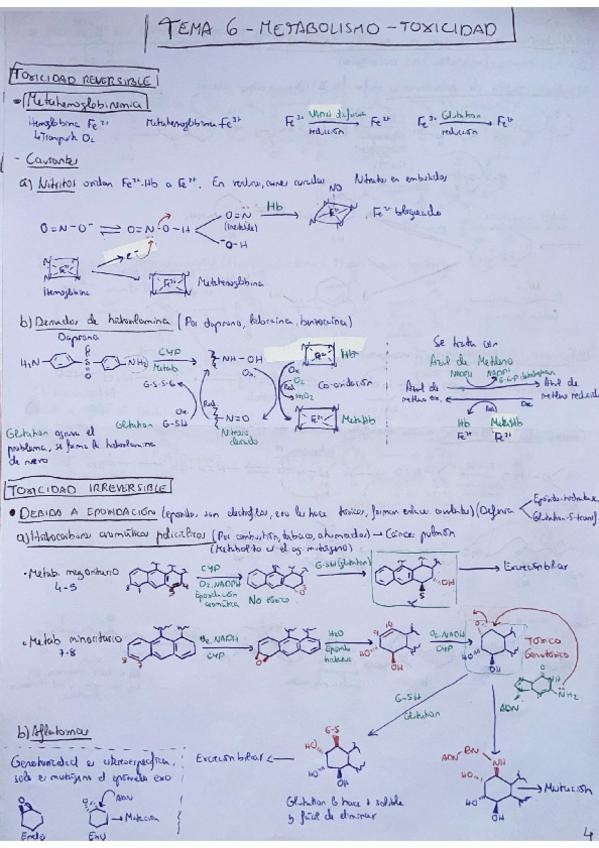 TEMA 6 - METABOLISMO - TOXICIDAD
TOXICIDAD REVERSIBLE
Metahemoglobinemia
Hemoglobina Fe²⁺ Metahemoglobina Fe³⁺ Fe³⁺ → Fe²⁺ Fe³⁺ Glutation → Fe²⁺
Transporta O₂ reducción reducción
- Causantes
a) Nitritos oxidan Fe²⁺-Hb a Fe³⁺. En verduras, carnes curadas Nitratos en embutidos
O=N-O⁻ ⇌ O=N-O-H O=N (Inestable) Hb → NO Fe²⁺ bloqueado
⁻O-H
e⁻
Hemoglobina Metahemoglobina
b) Derivados de hidroxilamina (Por dapsona, benzocaina)
Dapsona
H₂N NH₂ CYP Metab NH-OH Ox Hb
G-S-S-G O₂ Co-oxidación
Glutation G-SH Red N=O MetaHb
Nitroso derivado
Glutation agrava el
problema, se forma la hidroxilamina
de nuevo
Se trata con
Azul de Metileno
NADPH NADP⁺
Azul de metileno ox. Azul de metileno reducido
Red Ox
Hb MetaHb
Fe²⁺ Fe³⁺
TOXICIDAD IRREVERSIBLE
DEBIDA A EPOXIDACIÓN (epoxidos son electrofilos, eso les hace toxicos, forman enlaces covalentes) (Defensa Epoxido-hidratasa
Glutation-S-transf
a) Hidrocarburos aromaticos policiclicos (Por combustión, tabaco, ahumados) → Cáncer pulmón
(Metabolito es el ag mutágeno)
Metab mayoritario 4-5 CYP O₂, NADPH Epoxidación aromática No tóxico G-SH (glutation) OH S → Excreción biliar
Metab minoritario 7-8 O₂, NADPH CYP H₂O Epoxido hidratasa HO OH O₂, NADPH CYP HO OH Tóxico Genotóxico
ADN NH₂
G-SH
Glutation
b) Aflatoxinas
Genotoxicidad es estereoespecifica,
solo es mutágeno el epoxido exo
ADN
→ Mutación
Endo Exo
Excreción biliar ← G-S HO HO OH
Glutation lo hace + soluble
y fácil de eliminar
ADN NH HO HO OH → Mutación
4